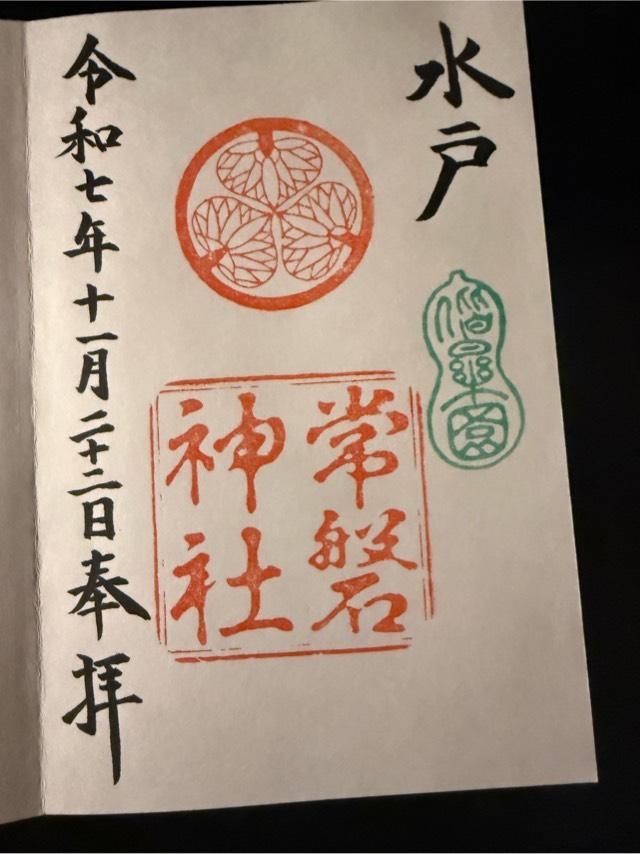 水戸
偕楽園
常磐
神社
令和七年十一月二十二日奉拝